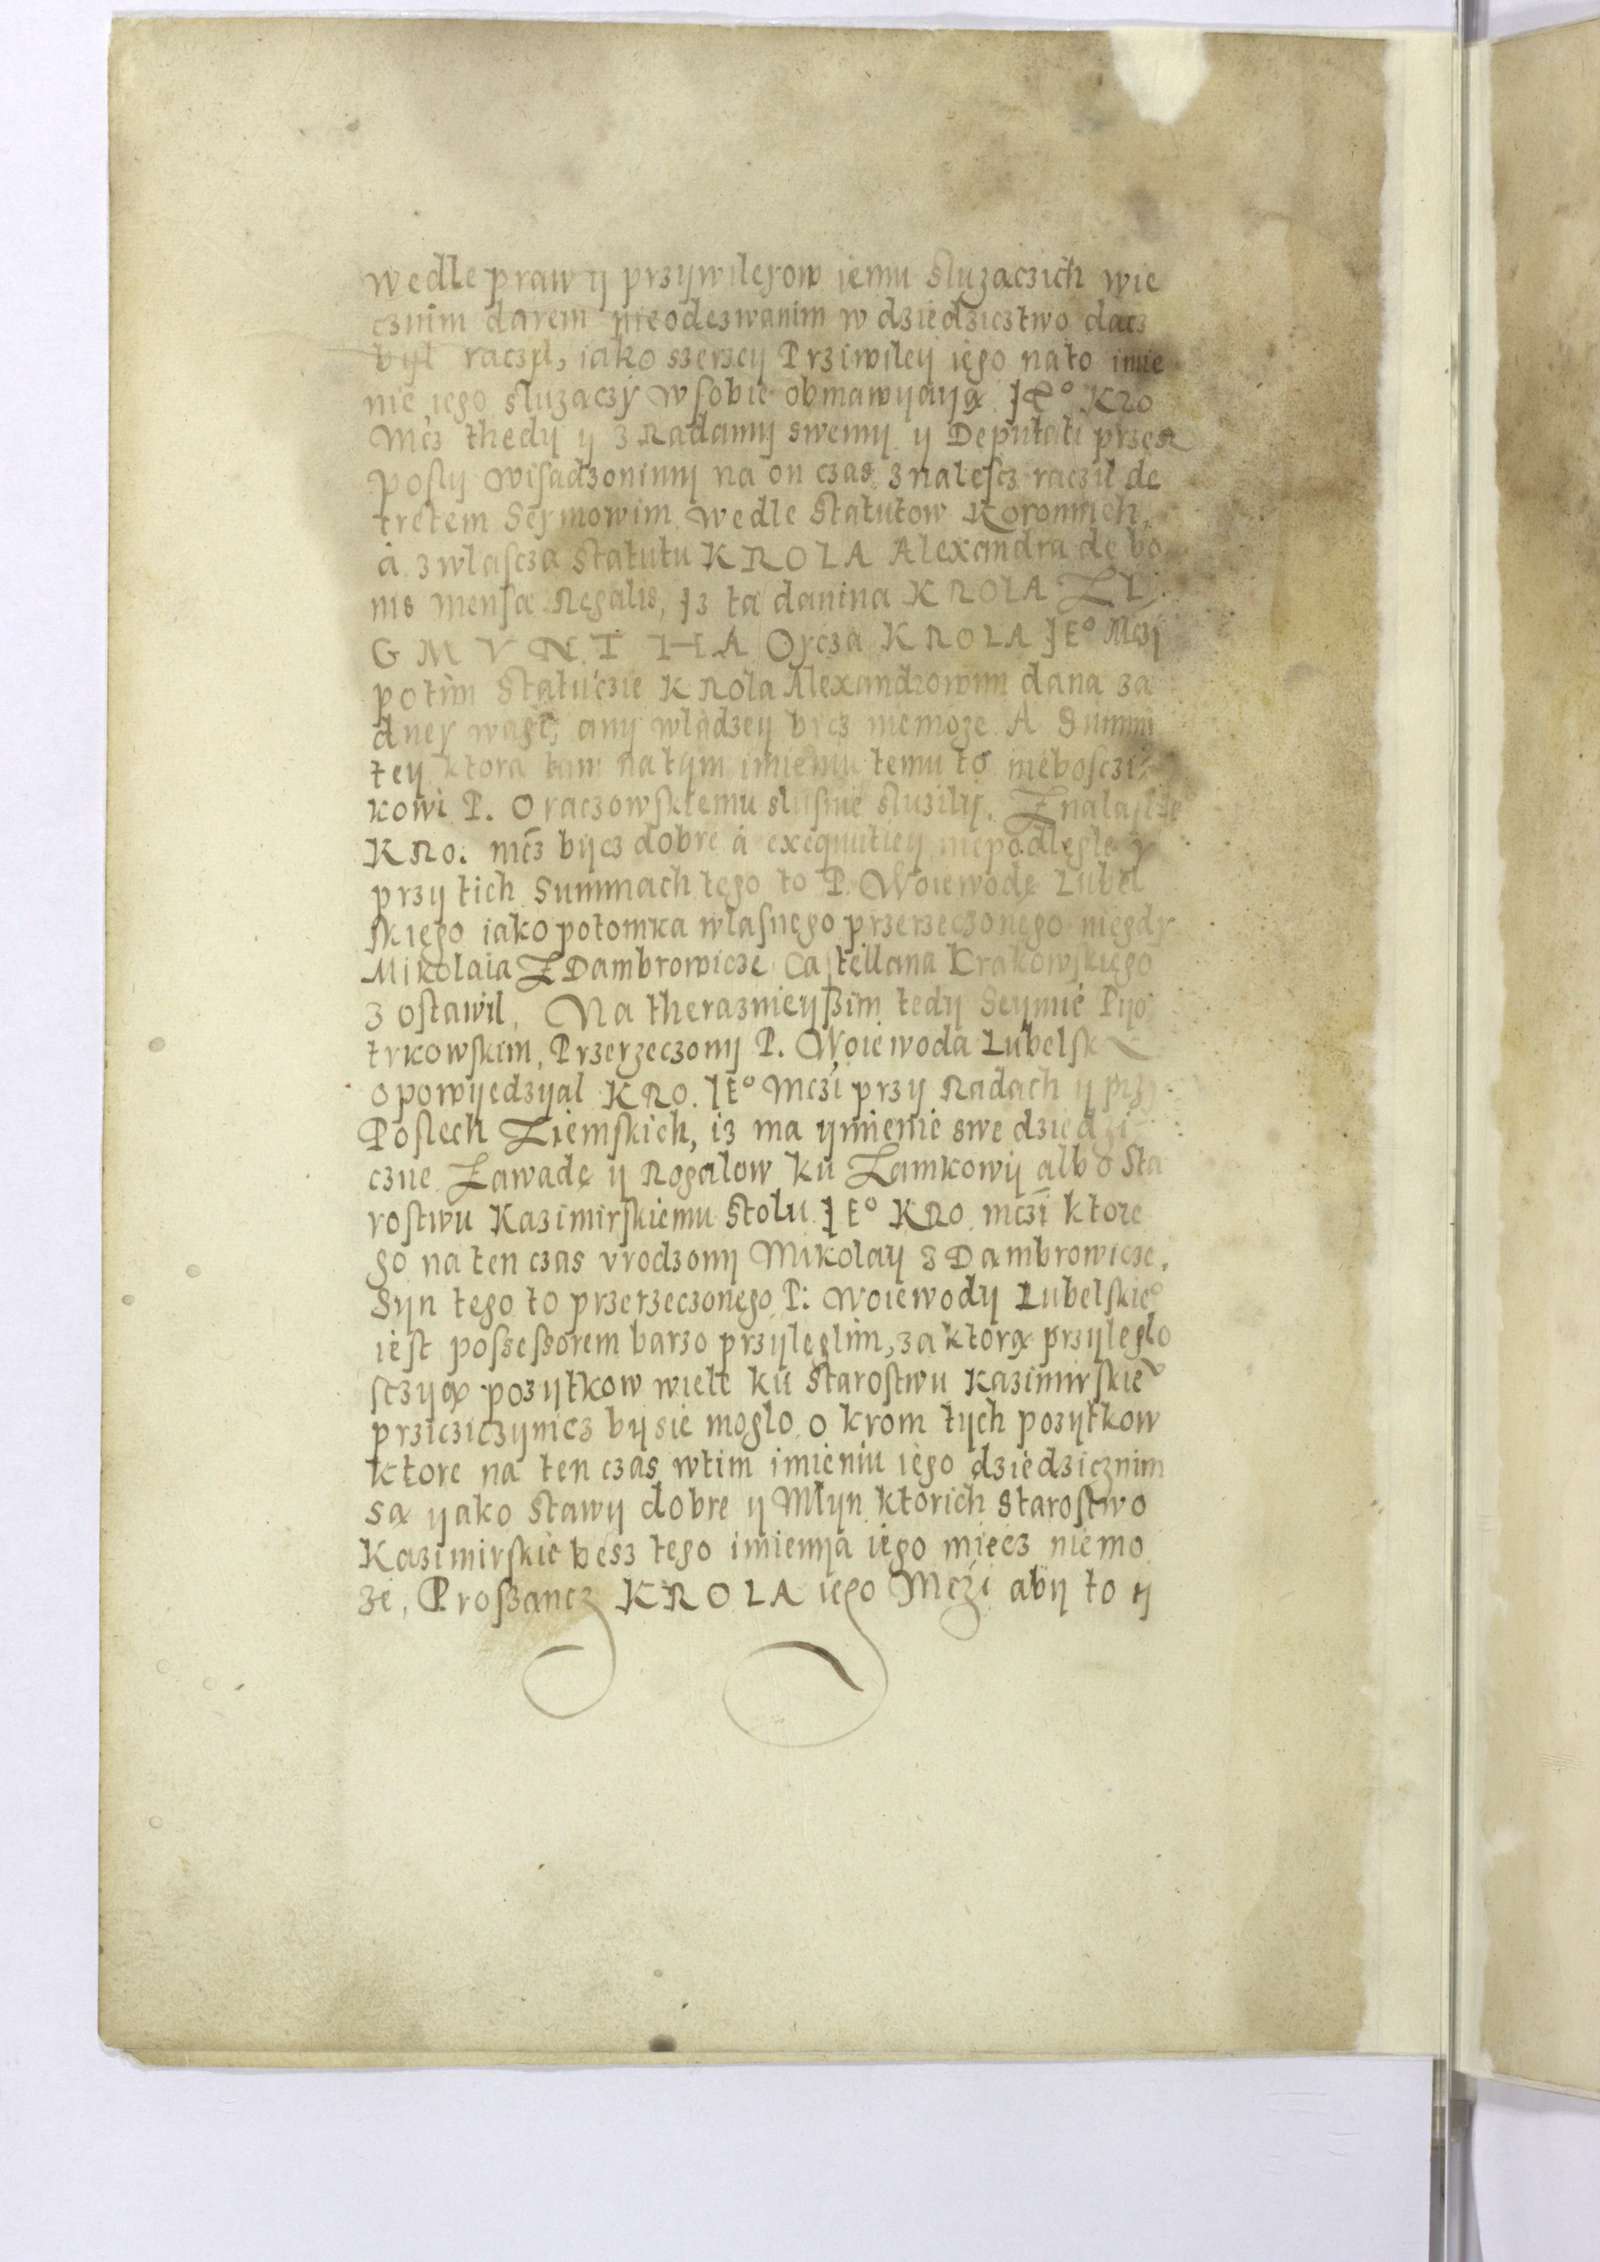 wedle praw ÿ przÿwileyow iemu sluzaczich wie
cznim darem nieodezwanim w dziedzicztwo dacz
byl raczyl, iako szerzeÿ Prziwileÿ iego na to imie
nie iego sluzaczÿ w sobie obmawÿaÿą JEº Kro
Mcz thedÿ ÿ z Radamÿ swemÿ ÿ Deputati przez
poslÿ wisadzonimÿ na on czas znalescz raczil de
kretem Seymowim wedle Statutow Koronnich,
à zwlascza Statutu KROLA Alexandra de bo
nis mensæ Regalis, Jz ta danina KROLA ZI
GMVNTHA Oycza KROLA JEº Mczi
potim Statuczie Krola Alexandrowim dana za
dney wagi, anÿ wladzeÿ bycz niemoze. A Summi
teÿ ktora tam na tÿm imieniu temu to niebosczi
kowi P. Oraczowskiemu slusnie sluzilÿ. Znalasl Je
KRO. mcz bÿcz dobre à exequutieÿ niepodlegle y
przÿ tich Summach tego to P. Woiewodę Lubel
skiego iako potomka wlasnego przerzeczonego niegdy
Mikolaia Z Dambrowicze Castellana Krakowskiego
zostawil, Na theraznieÿßim tedÿ Seÿmie Pÿo
trkowskim, Przerzeczonÿ P. Woiewoda Lubelsk
opowÿedzÿal KRO. JEº Mczi przÿ Radach ÿ prz
Poslech Ziemskich, iz ma ÿmienie swe dziedzi
czne Zawadę ÿ Rogalow ku Zamkowÿ albo Sta
rostwu Kazimirskiemu Stolu JEº KRO. mczi ktore
go na ten czas vrodzonÿ Mikolaÿ z Dambrowicze,
Sÿn tego to przerzeczonego P: Woiewodÿ Lubelskieº
iest possessorem barzo przÿleglim, za ktorą przÿleglo
sczÿą pozÿtkow wiele ku Starostwu Kazimirskie
prziczicÿnicz bÿ sie moglo okrom tÿch pozÿtkow
ktore na ten czas wtim imieniu iego dziedzicznim
są ÿako Stawÿ dobre ÿ Młÿn ktorich Starostwo
Kazimirskie besz tego imienÿa iego miecz niemo
ze, Proszancz KROLA iego Mczi abÿ to ÿ